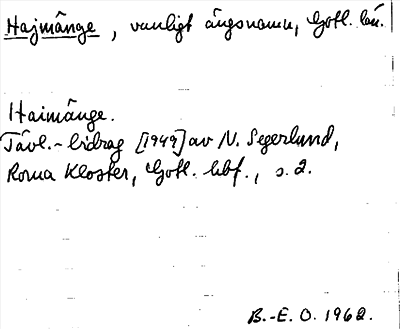 Hajmänge, vanligt ängsnamn, Gotl. län.
Haimänge.
Tävl.-bidrag [1949] av N. Segerlund,
Roma Kloster, Gotl. hbf., s. 2.
B.-E. O. 1962.